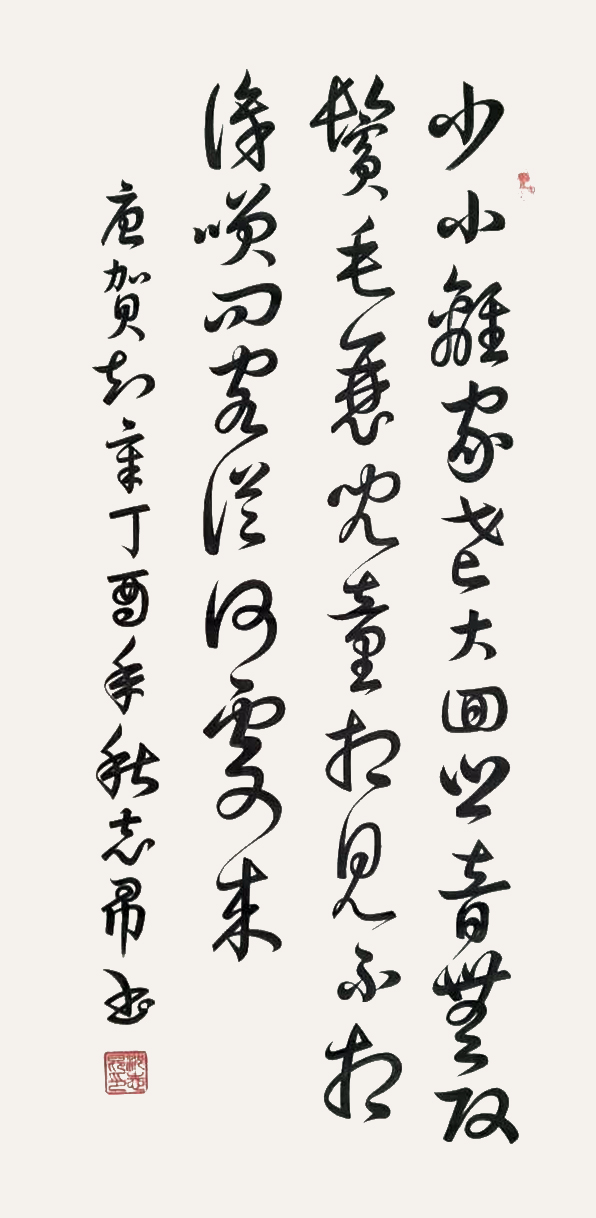 少小離家老大回鄉音無改
鬢毛衰兒童相見不相
識笑問客從何處來
唐賀知章丁酉年秋志昂書